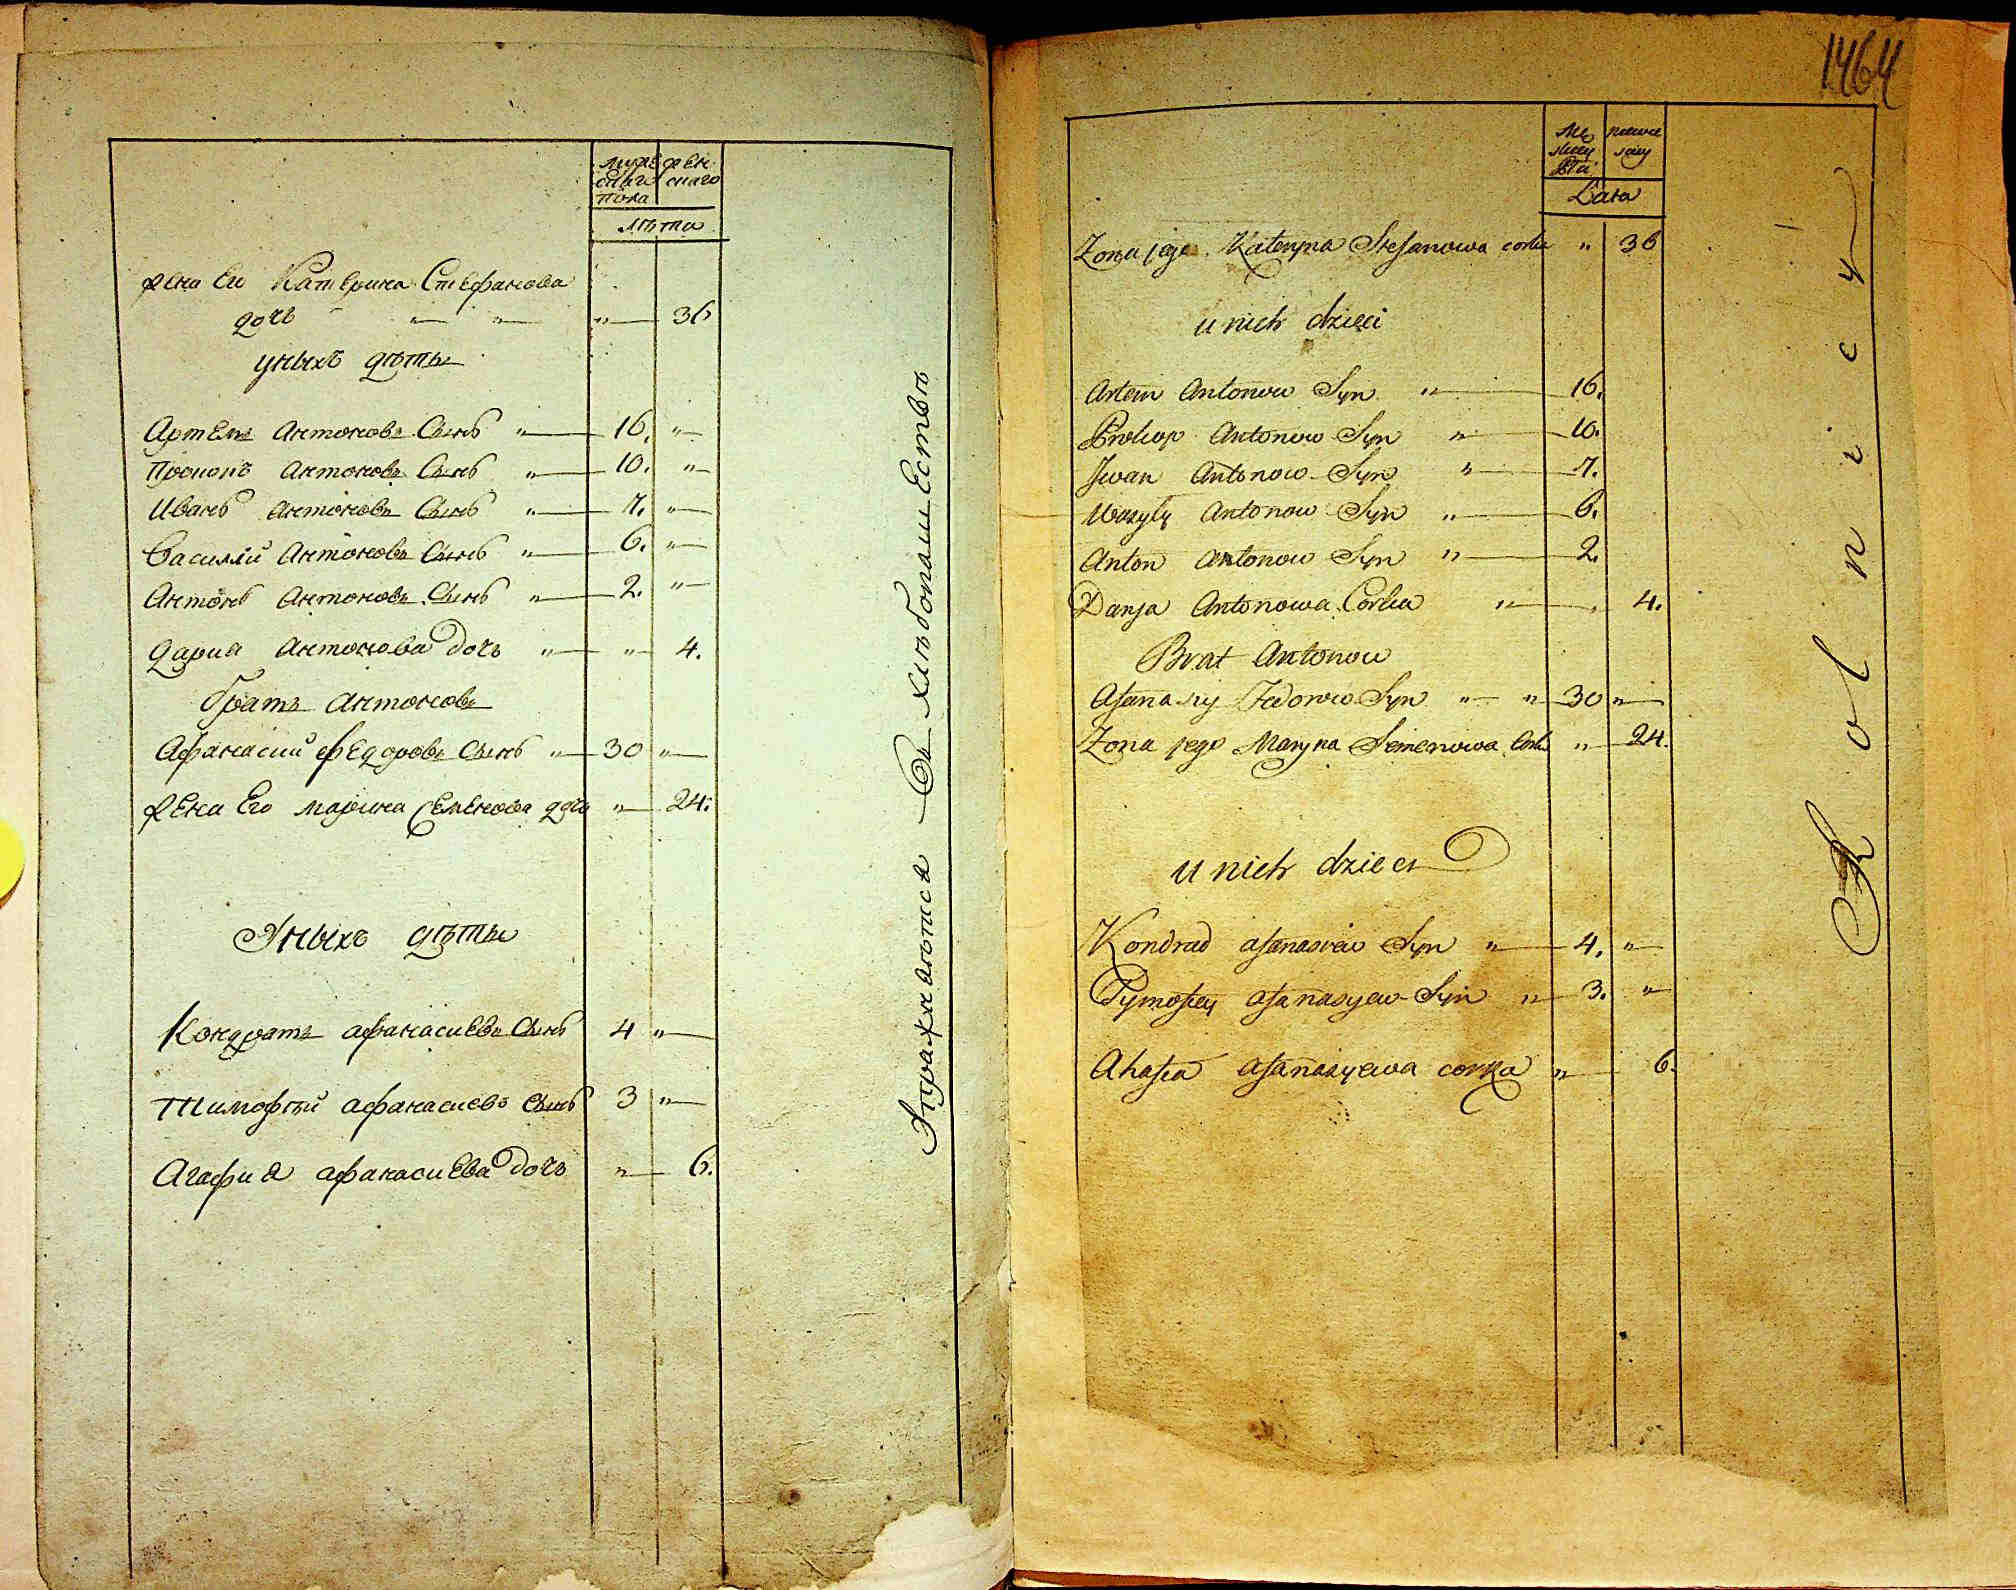 мужескаго пола
женскаго
лѣта
жена Ев Катерина Стефанова
дочь " " " 36
уныхъ дѣты
Артемъ Антоновъ Сынъ " 16. "
Прокопъ Антоновъ Сынъ " 10. "
Иванъ Антоновъ Сынъ " 7. "
Василий Антоновъ Сынъ " 6. "
Антонъ Антоновъ Сынъ " 2. "
Дария Антонова Дочь " " 4.
братъ Антоновъ
Афанасий Федоровъ Сынъ " 30 "
жена Его Марина Семенова дочь " 24.
Уныхъ дѣты
Кондратъ афанасиевъ Сынъ 4 "
Тимофѣй афанасиевъ Сынъ 3 "
Агафия афанасиева Дочь " 6.
Упражняются въ хлѣбопашестве
1464
Męskiey płci
Lata
Zona jego Kateryna Stefanowa corka " 36
u nich dzieci
Artem Antonow Syn " 16.
Prokop Antonow Syn " 10.
Iwan Antonow Syn " 7.
Wasyly Antonow Syn " 6.
Anton Antonow Syn " 2.
Darja Antonowa Corka " " 4.
Brat Antonow
Afanasiy Fedorow Syn " " 30 "
Zona jego Maryna Semenowa Corka " 24.
u nich dzieci
Kondrad afanasiew Syn " 4. "
Tymofiey afanasyew Syn " 3. "
Ahafia afanasyewa corka " 6.
Rolnicy